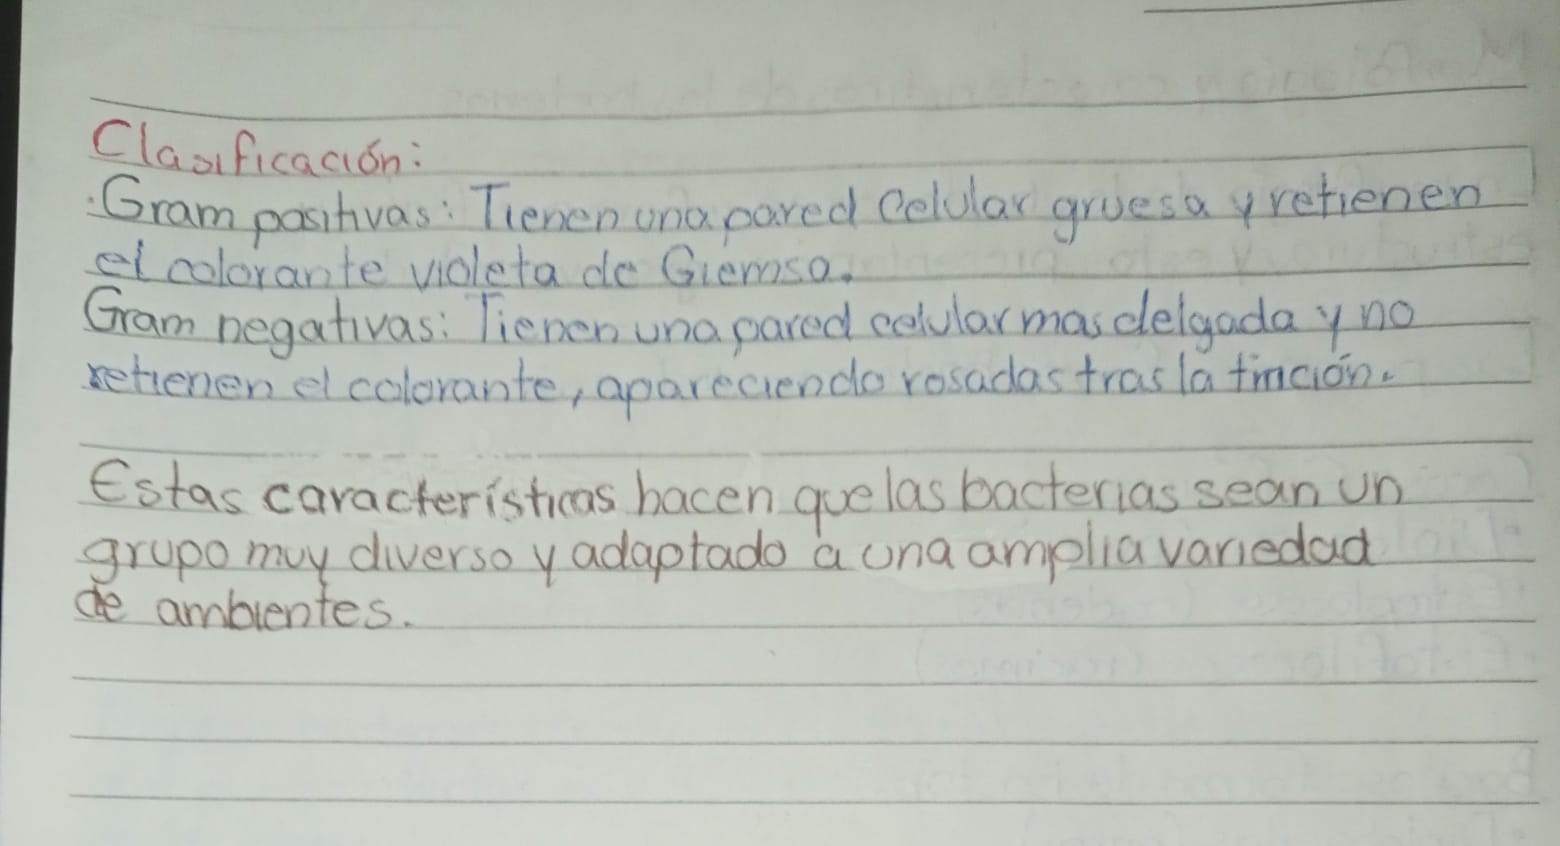 Clasificación:
· Gram positivas: Tienen una pared celular gruesa y retienen
el colorante violeta de Giemsa.
Gram negativas: Tienen una pared celular mas delgada y no
retienen el colorante, apareciendo rosadas tras la tinción.
Estas características hacen que las bacterias sean un
grupo muy diverso y adaptado a una amplia variedad
de ambientes.